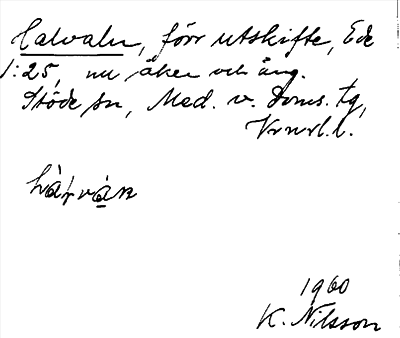 Calvaln, förr utskifte, Ede
1:25, nu åker och äng.
Stöde sn, Med. v. Doms. tg,
Vrnrl. l.
1960
K. Nilsson